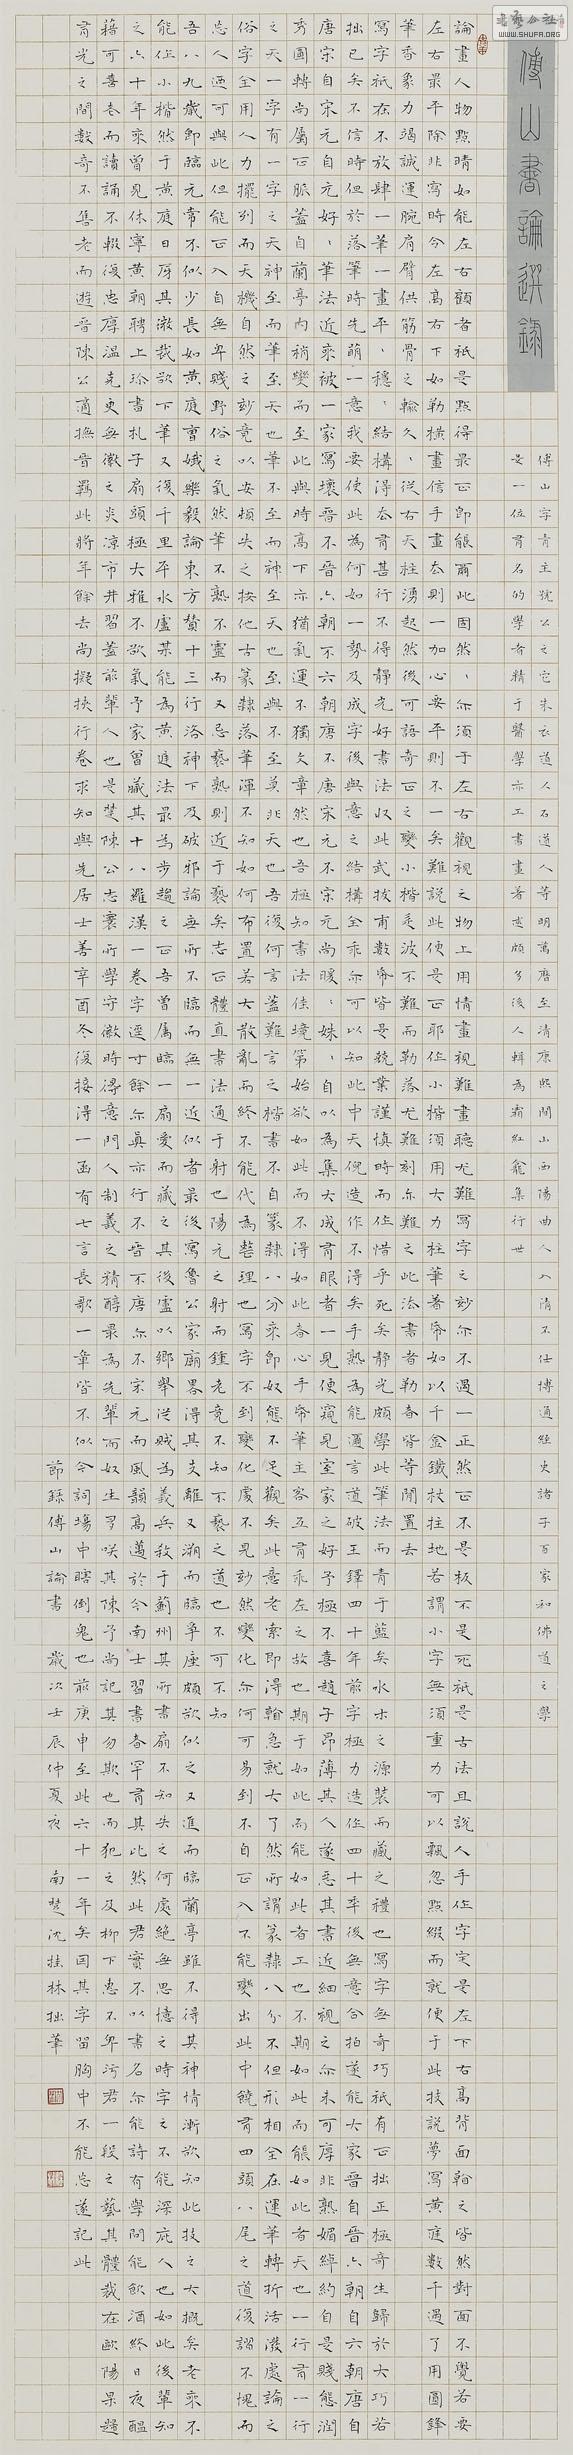 傅山書論選錄
书艺公社
WWW.SHUFA.ORG
傅山字青主號公之它朱衣道人石道人等明萬曆至清康熙間山西陽曲人入清不仕博通經史諸子百家和佛道之學
是一位有名的學者精于醫學亦工書畫著述頗多後人輯為霜紅龕集行世
論畫人物點睛如能左右顧者祇是點得最正即能爾此固然〻亦須于左右觀視之物上用情畫視難畫聽尤難寫字之妙亦不過一正然正不是板不是死祇是古法且說人手作字定是左下右高背面翰之皆然對面不覺若要
左右最平除非寫時令左高右下如勒橫畫信手畫去則一加心要平則不一矣難說此便是正耶作小楷須用大力柱筆著帋如以千金鐵杖拄地若謂小字無須重力可以飄忽點綴而就便于此技說夢寫黃庭數千過了用圓鋒
筆香象力竭誠運腕肩臂供筋骨之輸久〻從右天柱湧起然後可語奇正之變小楷乏波不難而勒落尤難刻亦難之此法書者勒春皆等閒置去
寫字祇在不放肆一筆一畫平〻穩〻結構得去有甚行不得靜光好書法收此武拔甫數帋皆是兢業謹慎時而作惜乎死矣靜光頗學此筆法而青于藍矣水木之源裝而藏之禮也寫字無奇巧祇有正拙正極奇生歸於大巧若
拙已矣不信時但於落筆時先萌一意我要使此為何如一勢及成字後與意之結構全乖亦可以知此中天倪造作不得矣手熟為能邇言道破王鐸四十年前字極力造作四十年後無意合拍遂能大家晉自晉六朝自六朝唐自
唐宋自宋元自元好〻筆法近來被一家寫壞晉不晉六朝不六朝唐不唐宋元不宋元尚暖〻姝〻自以為集大成有眼者一見便窺見室家之好予極不喜趙子昂薄其人遂惡其書近細視之亦未可厚非熟媚綽約自是賤態潤
秀圓轉尚屬正脈蓋自蘭亭內稍變而至此與時高下亦猶氣運不獨文章然也吾極知書法佳境第始欲如此而不得如此者心手帋筆主客互有乖左之故也期于如此而能如此者工也不期如此而能如此者天也一行有一行
之天一字有一字之天神至而筆至天也筆不至而神至天也至與不至莫非天也吾復何言蓋難言之楷書不自篆隸八分來即奴態不足觀矣此意老索即得翰急就大了然所謂篆隸八分不但形相全在運筆轉折活潑處論之
俗字全用人力擺列而天機自然之妙竟以安頓失之按他古篆隸落筆渾不知如何布置若大散亂而終不能代為整理也寫字不到變化處不見妙然變化亦何可易到不自正入不能變出此中饒有四頭八尾之道復謂不愧而
忘人迺可與此但能正入自無卑賤野俗之氣然筆不熟不靈而又忌褻熟則近于褻矣志正體直書法通于射也陽元之射而鍾老竟不知不褻之道也不可不知
吾八九歲即臨元常不似少長如黃庭曹娥樂毅論東方贊十三行洛神下及破邪論無所不臨而無一近似者最後寫魯公家廟畧得其支離又溯而臨爭座頗欲似之又進而臨蘭亭雖不得其神情漸欲知此技之大概矣老來不
能作小楷然于黃庭日厚其微哉欲下筆又復千里平水盧某能為黃庭法最為步趨之正吾曾屬臨一扇愛而藏之其後盧以鄉舉從賊為義兵殺于薊州其所書扇不知其何處絕無思憶之時字之不能深庇人也如此後輩知
之六十年來曾見休寧黃朝聘上珍書札子扇頭極大雅不欲氣予家曾藏其十八羅漢一卷字逕寸餘亦真亦行不晉不唐亦不宋元而風韻高邁於今南士習書者罕有其比然此君實不以書名亦能詩有學問能飲酒終日夜醞
藉可喜卷而讀誦不輟復忠厚溫克更無徽之炎涼市井習蓋前輩人也是楚陳公志寰所學守徽時得意門人制義之精醇最為先輩而奴生多咲其陳予尚記其勿欺也而犯之及柳下惠不卑污君一段之藝其體裁在歐陽杲趨
育光之間數奇不售老而遊晉陳公適撫晉羈此將年餘去尚擬挾行卷求知與先居士善辛酉冬復接得一函有七言長歌一章皆不似今詞場中瞎倒鬼也前庚申至此六十一年矣因其字留胸中不能忘遂記此
節錄傅山論書 歲次壬辰仲夏夜 南楚沈桂林拙筆